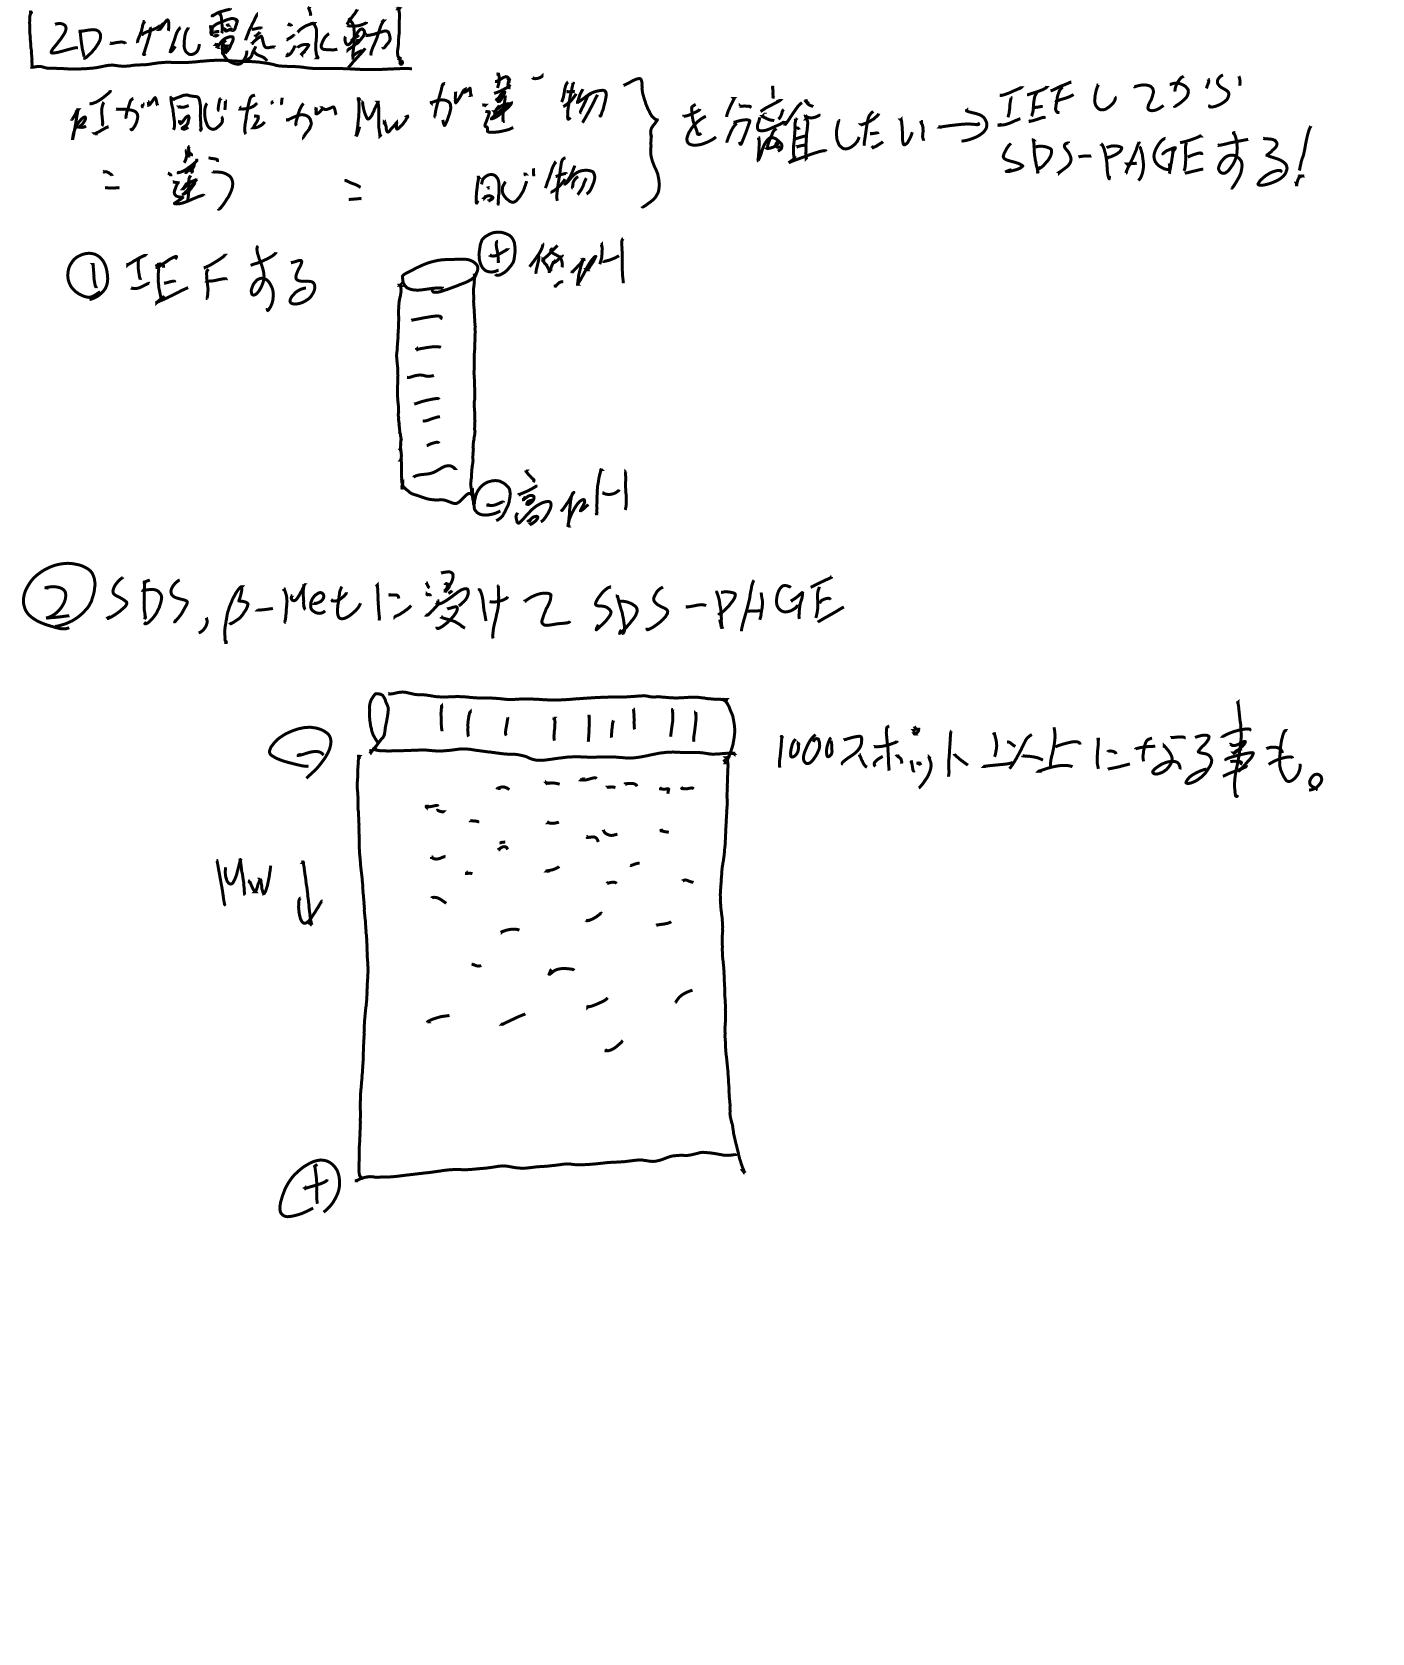 2D-ゲル電気泳動
pIが同じだがMwが違う物
〃 違う 〃 同じ物
を分離したい→IEFしてから
SDS-PAGEする!
①IEFする
⊕低pH
⊖高pH
②SDS, β-Metに浸けてSDS-PAGE
⊖
1000スポット以上になる事も。
Mw↓
⊕